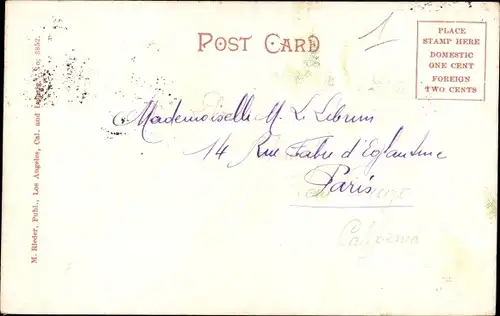 POST CARD
1
PLACE
STAMP HERE
DOMESTIC
ONE CENT
FOREIGN
TWO CENTS
M. Rieder, Publ., Los Angeles, Cal. and No. 3852.
Mademoiselle M. Le Lebrun
14 Rue Fabre d'Eglantine
Paris